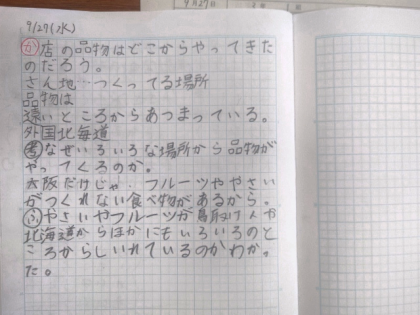 9月27日
9/27(水)
か 店の品物はどこからやってきた
のだろう。
さん地…つくってる場所
品物は
遠いところからあつまっている。
外国北海道
考 なぜいろいろな場所から品物が
やってくるのか。
大阪だけじゃ、フルーツややさい
がつくれない食べ物があるから。
ふ やさいやフルーツが鳥取け人や
北海道からほかにもいろいろのと
ころからしいれているのかわか。
た。